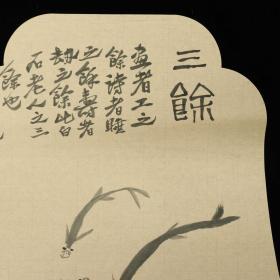 三餘
画者工之
餘詩者睡
之餘壽者
劫之餘此白
石老人之三
餘也